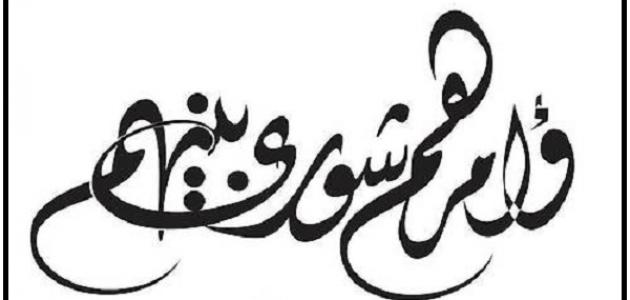 وأمرهم شورى بينهم